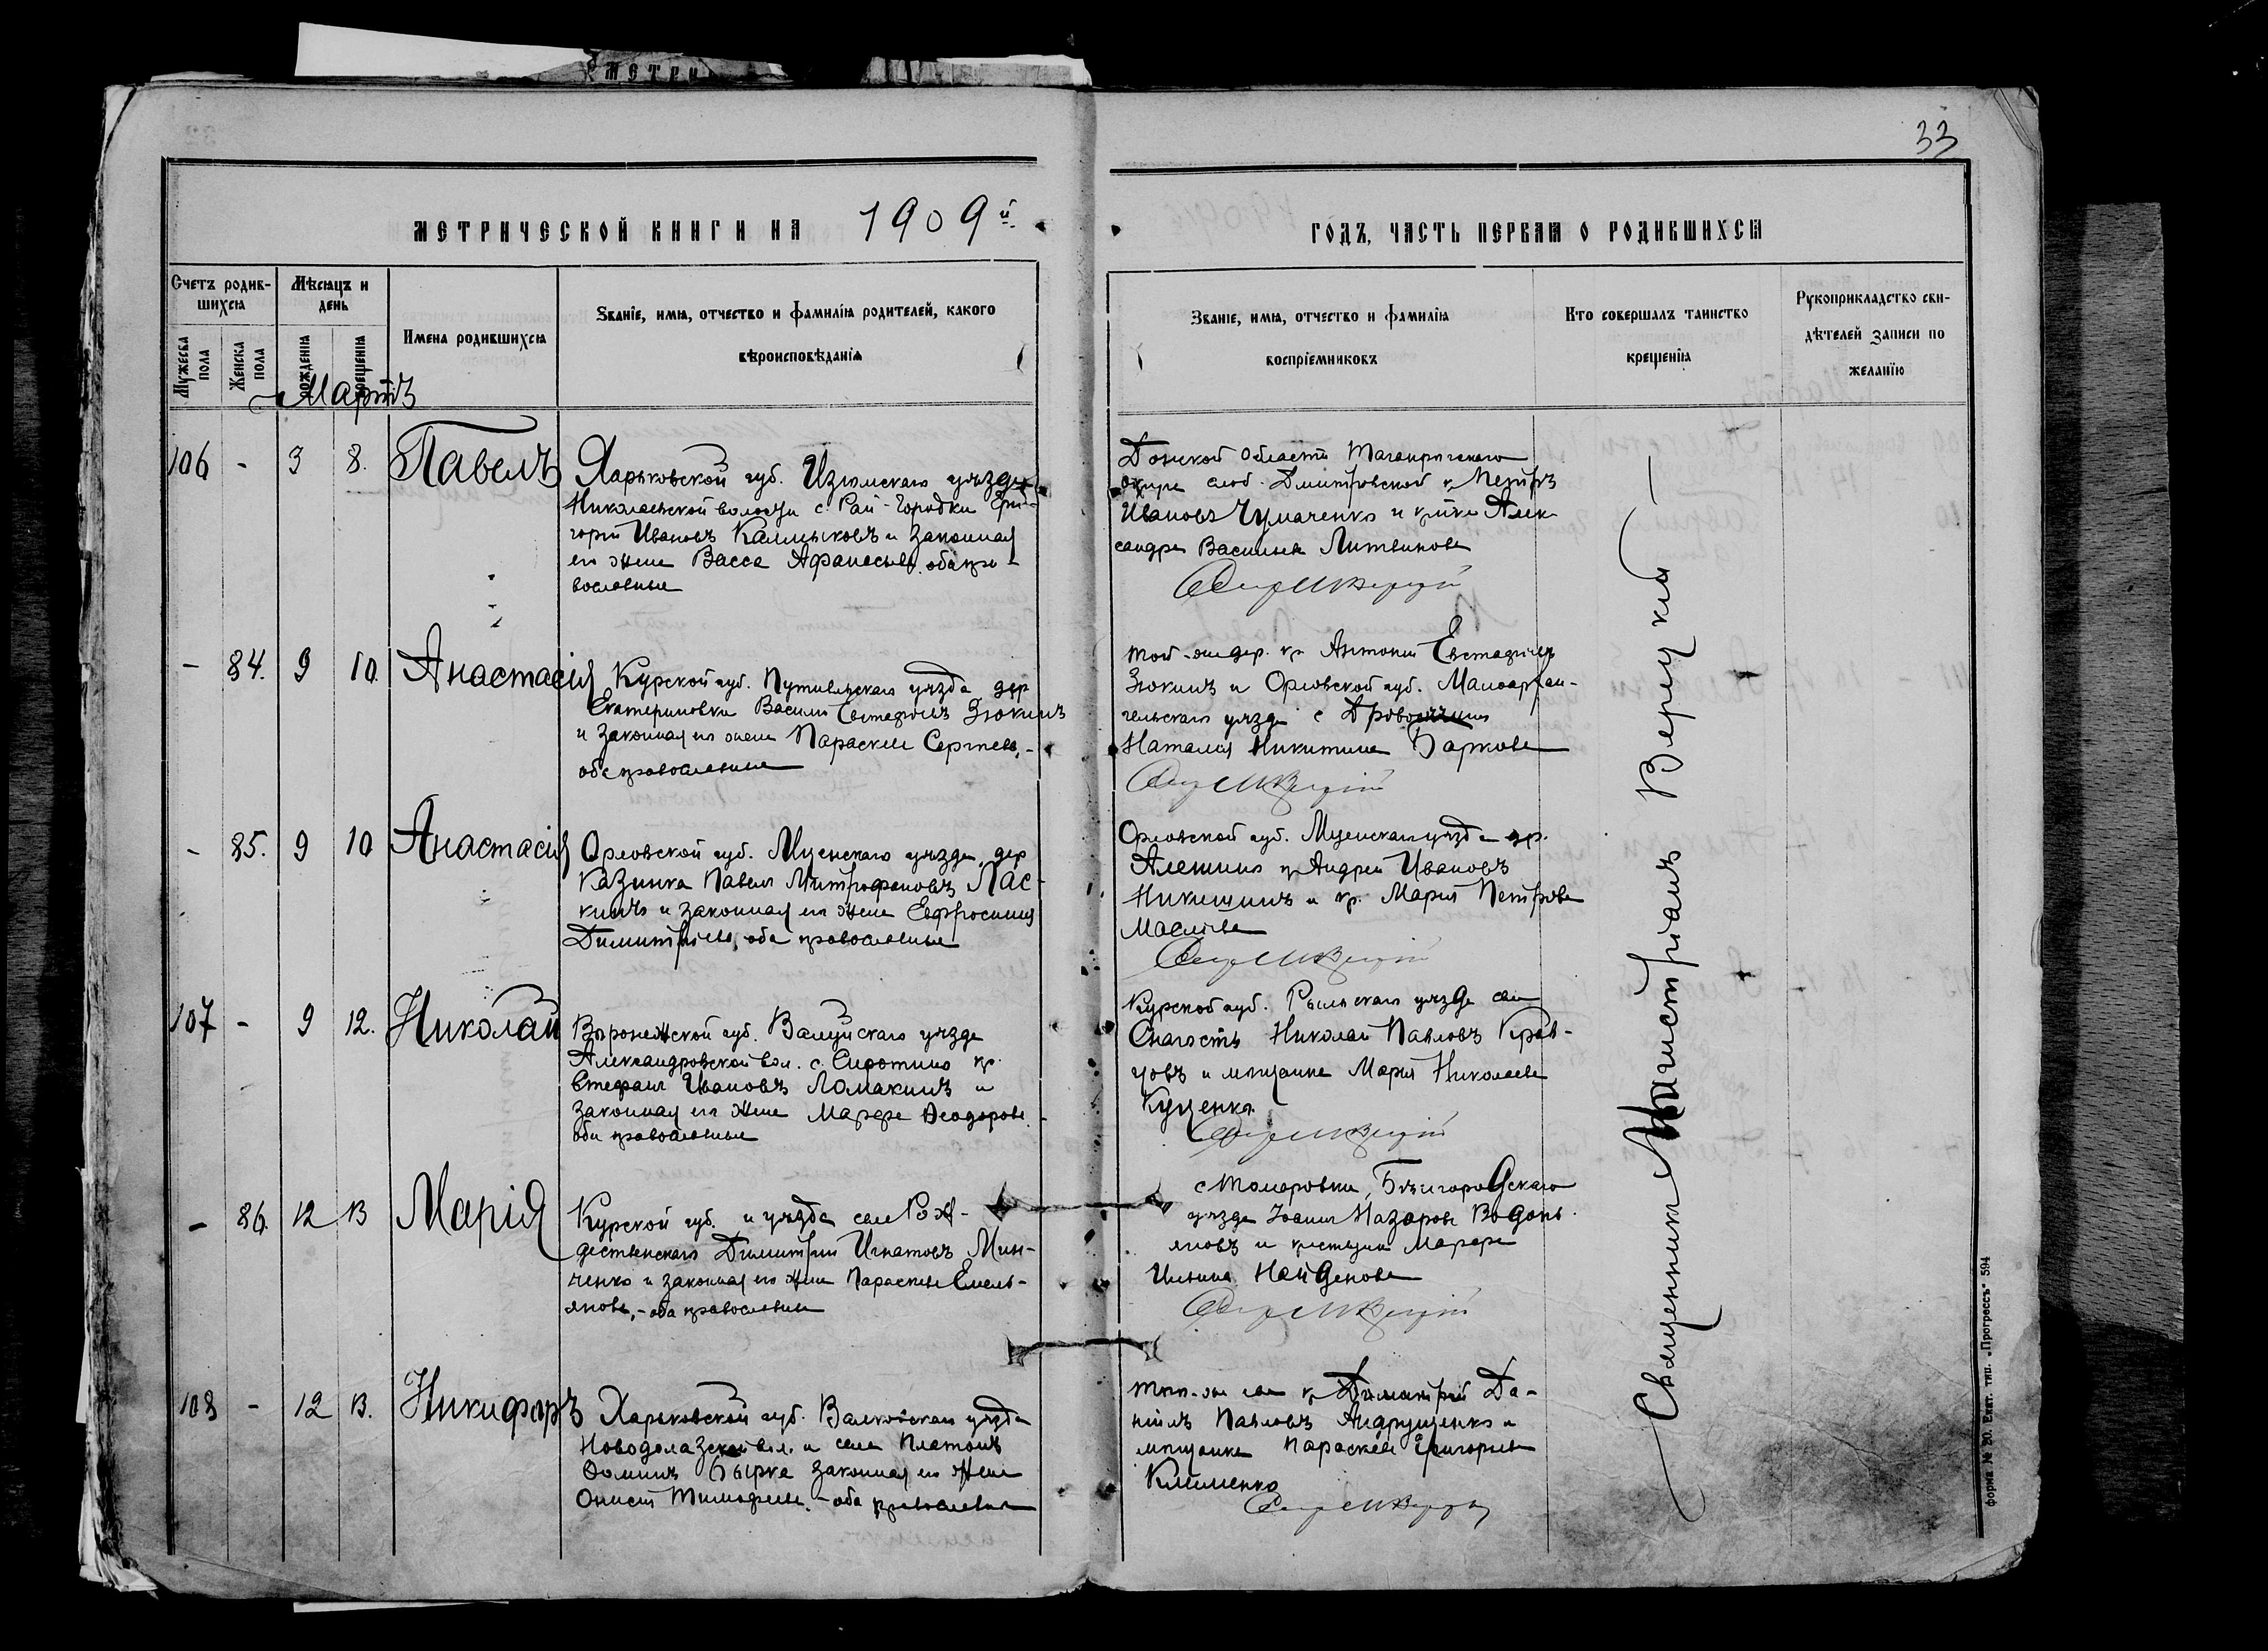 33
МЕТРИЧЕСКОЙ КНИГИ НА 1909й
ГОДЪ, ЧАСТЬ ПЕРВАЯ О РОДИВШИХСЯ
Счетъ родив-
шихся
Мѣсяцъ и
день
Мужеска
пола
Женска
пола
рожденія
крещенія
Имена родившихся
Званіе, имя, отчество и фамилія родителей, какого
вѣроисповѣданія
Званіе, имя, отчество и фамилія
воспріемниковъ
Кто совершалъ таинство
крещенія
Рукоприкладство сви-
дѣтелей записи по
желанію
Мартъ
106 - 3 8. Павелъ
Харьковской губ. Изюмскаго уѣзда
Николаевской волости с. Рай-Городки Гри-
горій Ивановъ Калмыковъ и законная
его жена Васса Афанасьева, оба пра-
вославные
Донской области Таганрогскаго
округа слоб. Дмитровской кр. Петръ
Ивановъ Чумаченко и Алек-
сандра Васильева Литвинова
- 84. 9 10 Анастасія
Курской губ. Путивльскаго уѣзда дер
Екатериновки Василій Евстафіевъ Зюкинъ
и законная его жена Параскева Сергіева,-
оба православные
той-же дер. кр Антоній Евстафіевъ
Зюкинъ и Орловской губ. Малоархан-
гельскаго уѣзда с
Наталія Никитина Баркова
- 85. 9 10 Анастасія
Орловской губ. Мценскаго уѣзда, дер
Казинка Павелъ Митрофановъ Лас-
кинъ и законная его жена Евфросинія
Димитріева, оба православные
Орловской губ. Мценскаго уѣзда др.
Алешино кр Андрей Ивановъ
Никишинъ и кр. Марія Петрова
Маслова
107 - 9 12. Николай
Воронежской губ. Валуйскаго уѣзда
Александровской вол. с. Сиротино кр.
Стефанъ Ивановъ Ломакинъ и
законная его жена Марфа Ѳеодорова.-
оба православные
Курской губ. Рыльскаго уѣзда села
Снагость Николай Павловъ Крав-
цовъ и мѣщанка Марія Николаева
Куценко
- 86. 12 13 Марія
Курской губ. и уѣзда села Рож-
дественскаго Димитрій Игнатовъ Мин-
ченко и законная его жена Параскева Емель-
янова,-оба православные
с Томаровки, Бѣлгородскаго
уѣзда Іоаннъ Назаровъ Водонь
яновъ и Марфа
Ильина Найденова
108 - 12 13. Никифоръ
Харьковской губ. Валковскаго уѣзда
Новодолазской вол. и села Платонъ
Ѳоминъ Бырка законная его жена
Онисія Тимофеева.-оба православные
того-же села кр Димитрій Да-
ніилъ Павловъ Андрущенко и
мѣщанка Параскева Григорьева
Клименко
Священникъ Верецкій
форма № 20. Екат. тип. „Прогрессъ“ 594